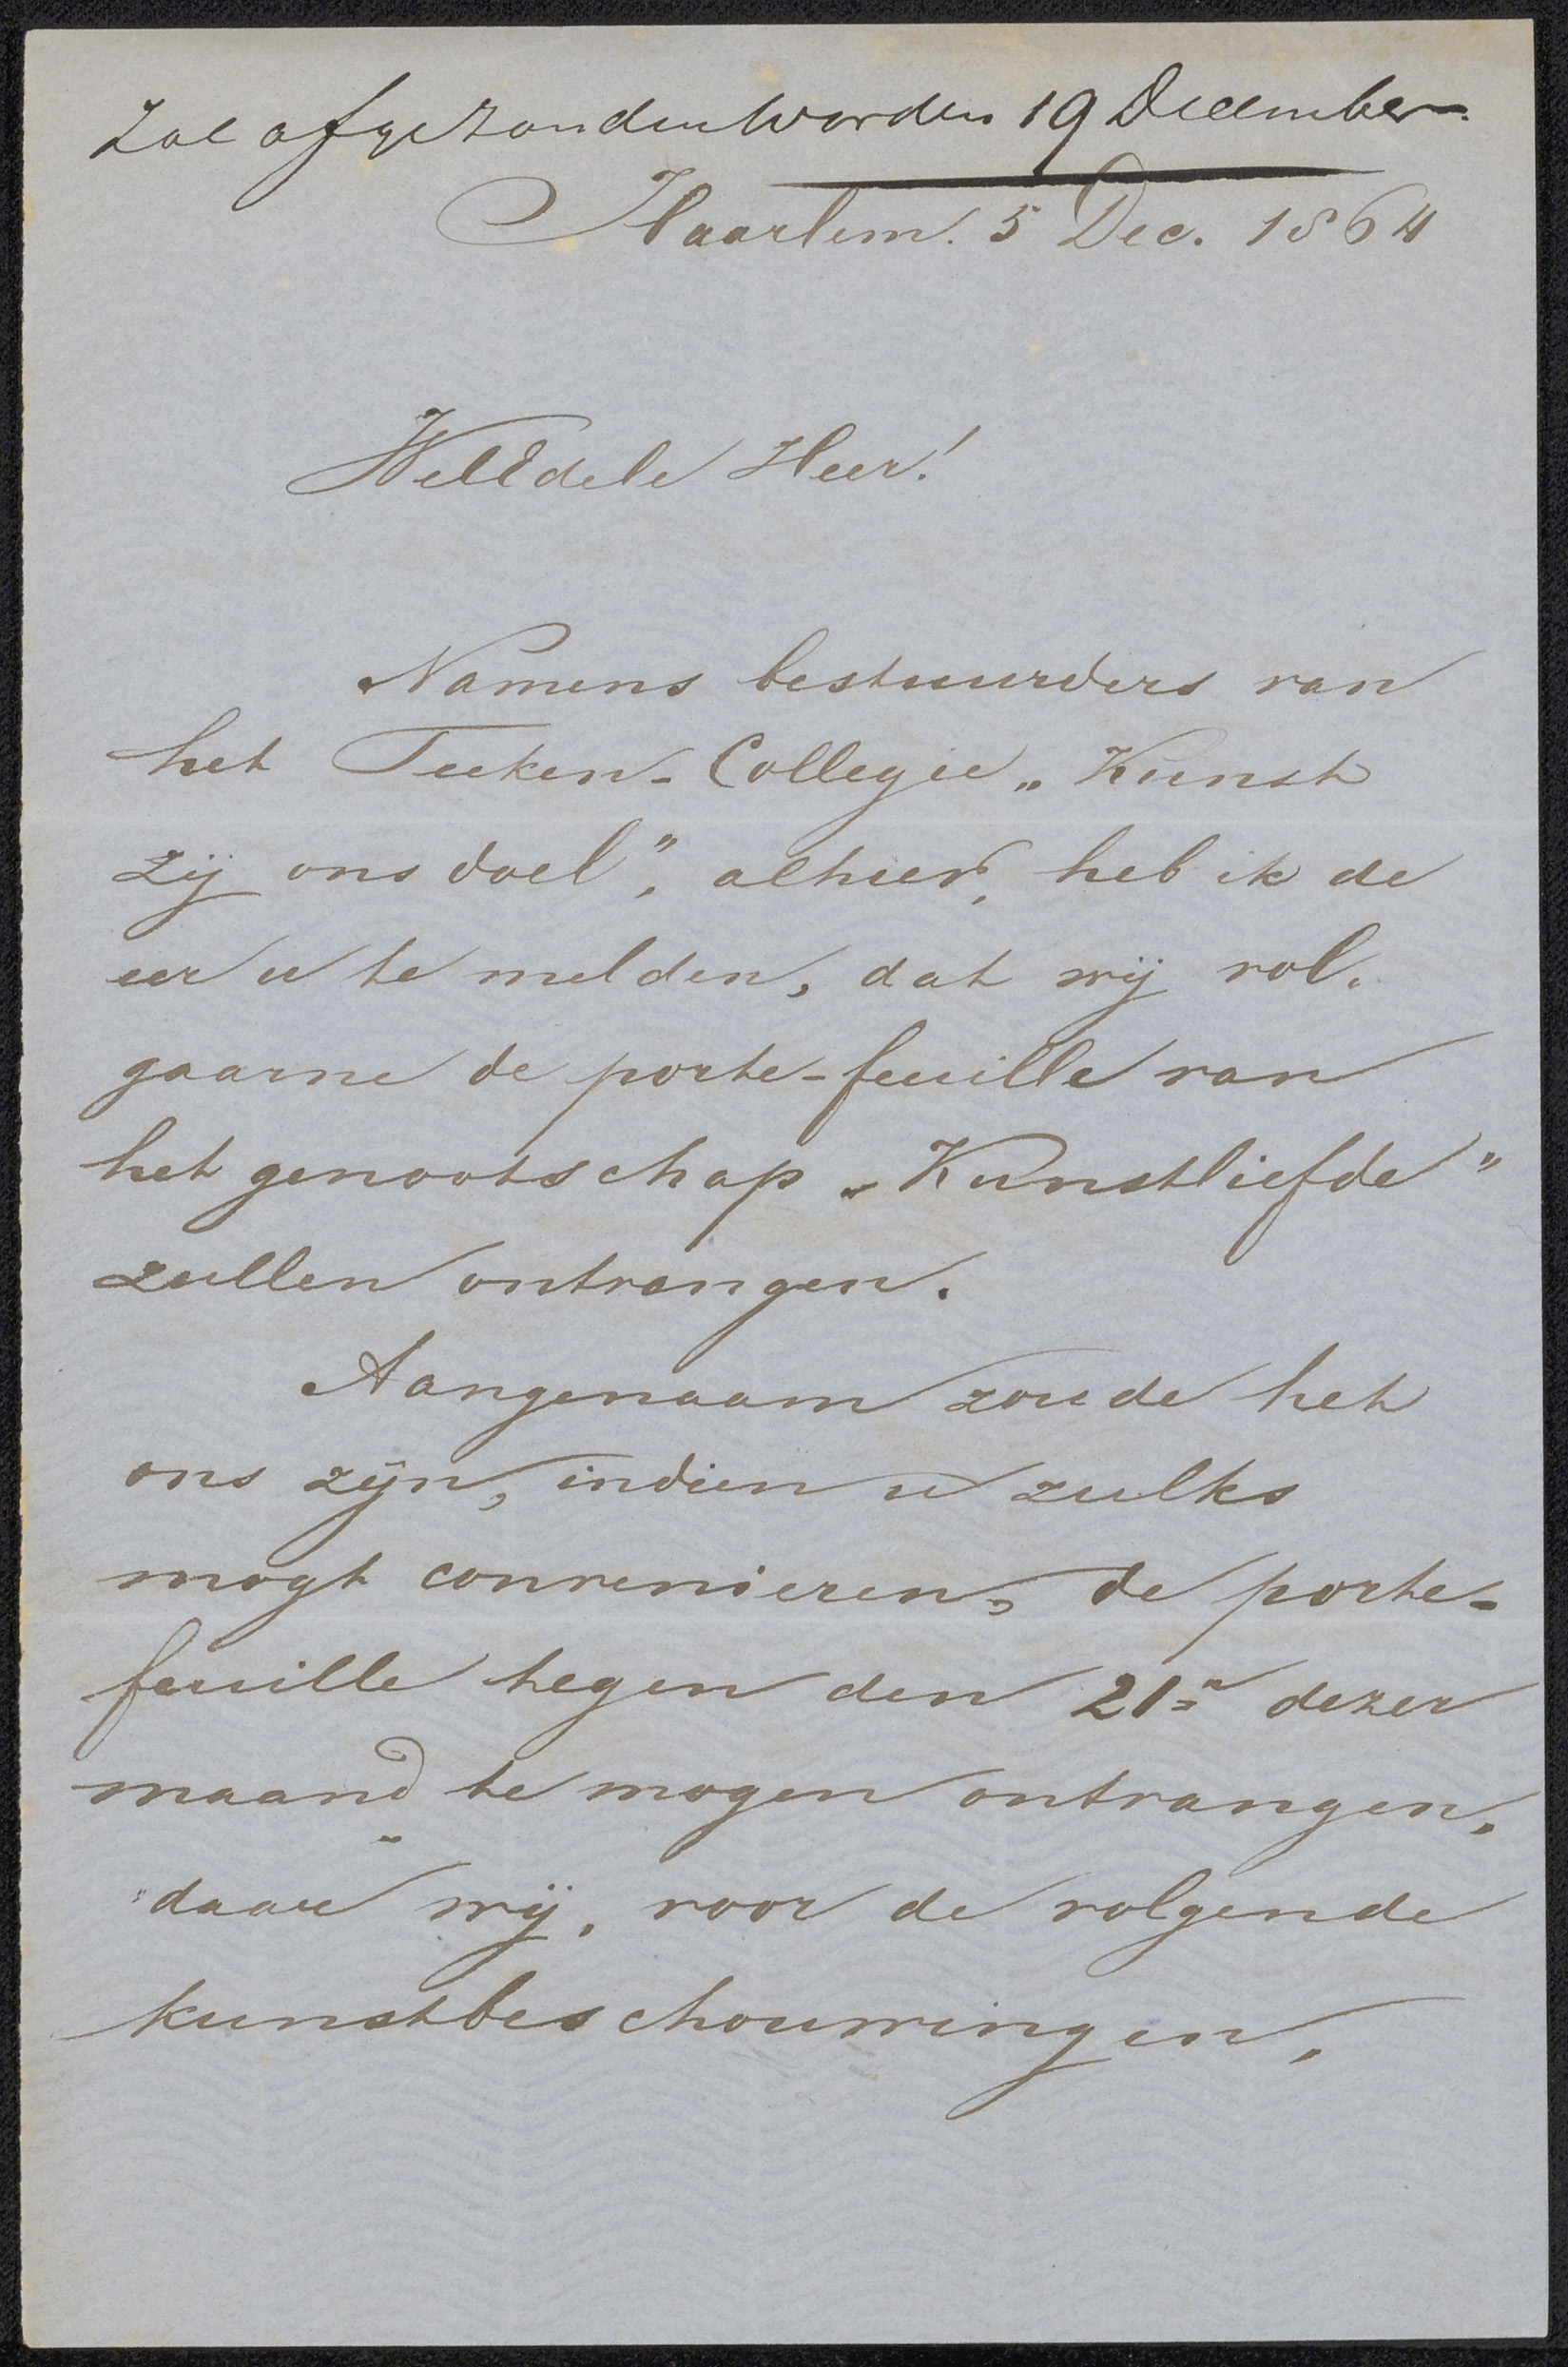 Zal afgezonden worden 19 December.
Haarlem. 5 Dec. 1864
WelEdele Heer!
Namens bestuurders van
het Teeken-Collegie „Kunst
zij ons doel", alhier, heb ik de
eer u te melden, dat wij vol.
gaarne de porte-feuille van
het genootschap „Kunstliefde"
zullen ontvangen.
Aangenaam zoude het
ons zijn, indien u zulks
mogt convenieren, de porte-
feuille tegen den 21n dezer
maand te mogen ontvangen,
daar wij, voor de volgende
kunstbeschouwingen,